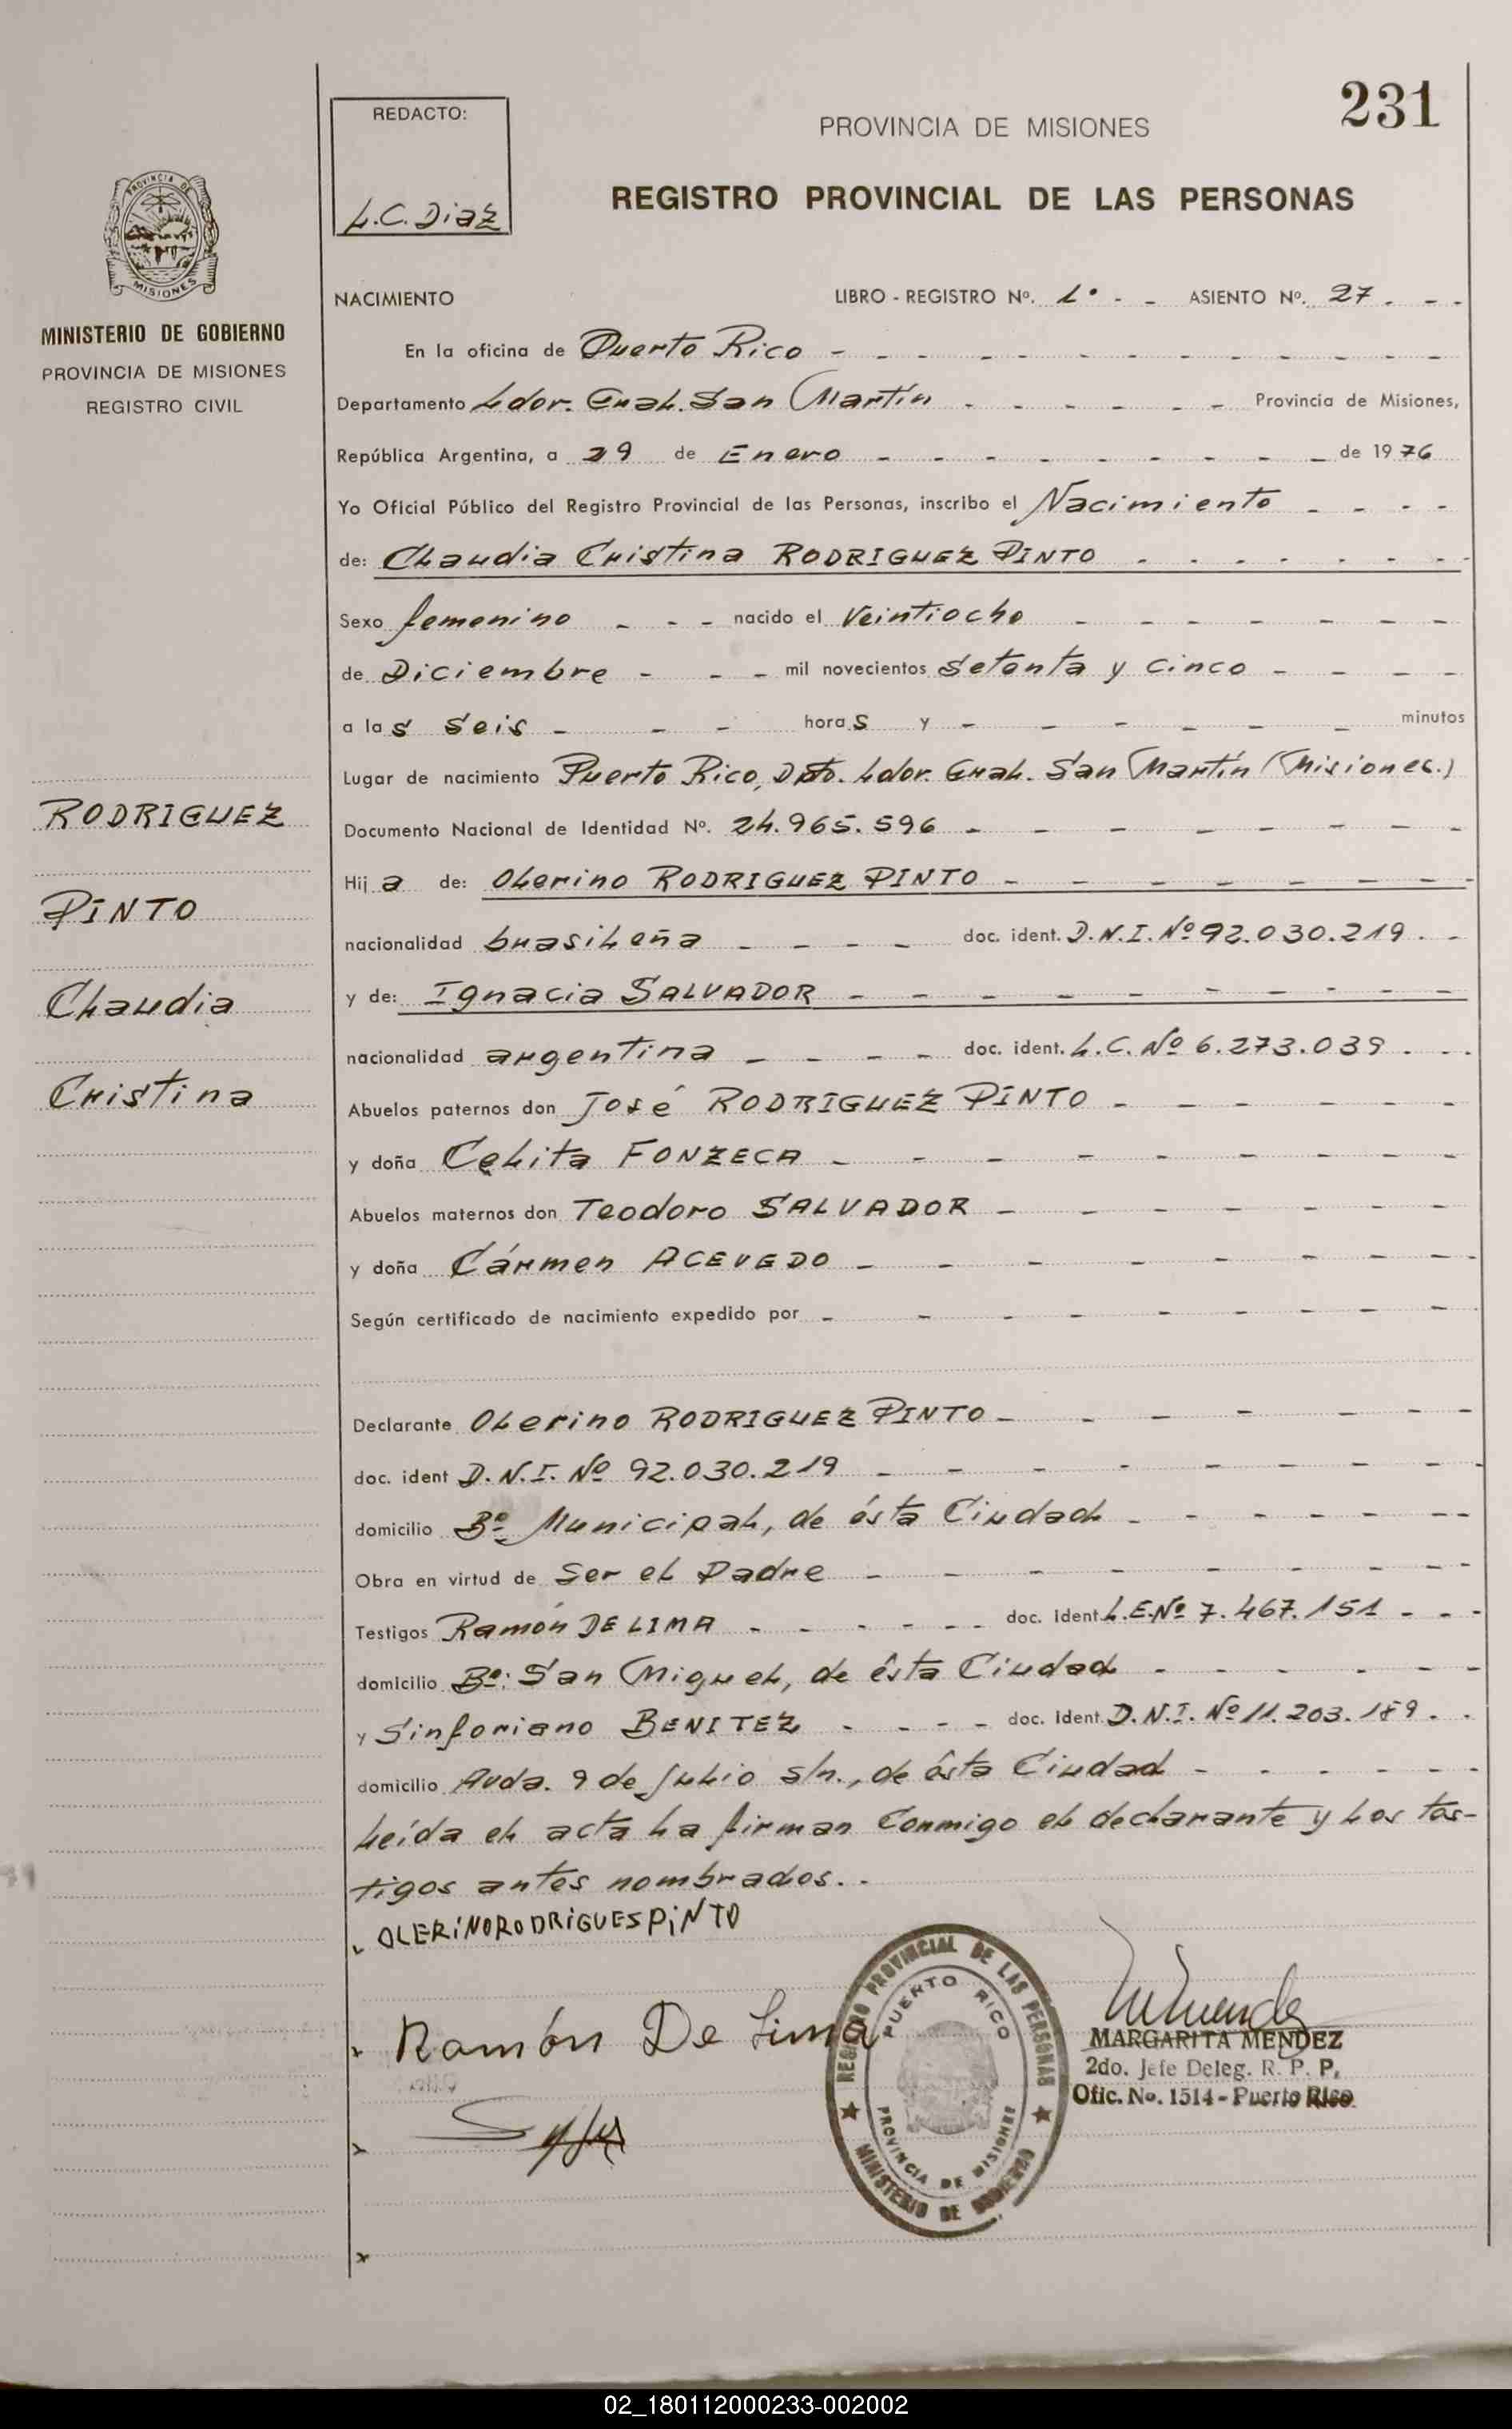 231
REDACTO:
L.C. Diaz
PROVINCIA DE MISIONES
REGISTRO PROVINCIAL DE LAS PERSONAS
PROVINCIA DE
MISIONES
MINISTERIO DE GOBIERNO
PROVINCIA DE MISIONES
REGISTRO CIVIL
NACIMIENTO LIBRO - REGISTRO Nº. 1º - - ASIENTO Nº. 27 - - -
En la oficina de Puerto Rico
Departamento Ldor. Gral. San Martín Provincia de Misiones,
República Argentina, a 29 de Enero de 1976
Yo Oficial Público del Registro Provincial de las Personas, inscribo el Nacimiento
de: Claudia Cristina RODRIGUEZ PINTO
Sexo femenino nacido el Veintiocho
de Diciembre mil novecientos Setenta y cinco
a las seis horas y minutos
Lugar de nacimiento Puerto Rico, Dpto. Ldor. Gral. San Martín (Misiones.)
Documento Nacional de Identidad Nº. 24.965.596
Hija de: Olerino RODRIGUEZ PINTO
nacionalidad brasileña doc. ident. D.N.I. Nº 92.030.219
y de: Ignacia SALVADOR
nacionalidad argentina doc. ident. L.C. Nº 6.273.039
Abuelos paternos don José RODRIGUEZ PINTO
y doña Celita FONZECA
Abuelos maternos don Teodoro SALVADOR
y doña Cármen ACEVEDO
Según certificado de nacimiento expedido por
Declarante Olerino RODRIGUEZ PINTO
doc. ident D.N.I. Nº 92.030.219
domicilio Bº Municipal, de ésta Ciudad
Obra en virtud de ser el Padre
Testigos Ramón DE LIMA doc. ident. L.E.Nº 7.467.151
domicilio Bº: San Miguel, de ésta Ciudad
y Sinforiano BENITEZ doc. ident. D.N.I. Nº 11.203.189
domicilio Avda. 9 de Julio s/n., de ésta Ciudad
Leída el acta la firman Conmigo el declarante y los tes-
tigos antes nombrados.
OLERiNORODRiGUESPiNTO
Ramón De Lima
RODRIGUEZ
PINTO
Claudia
Cristina
REGISTRO PROVINCIAL DE LAS PERSONAS
PUERTO RICO
PROVINCIA DE MISIONES
MINISTERIO DE GOBIERNO
MARGARITA MENDEZ
2do. Jefe Deleg. R. P. P.
Ofic. No. 1514 - Puerto Rico
02_180112000233-002002